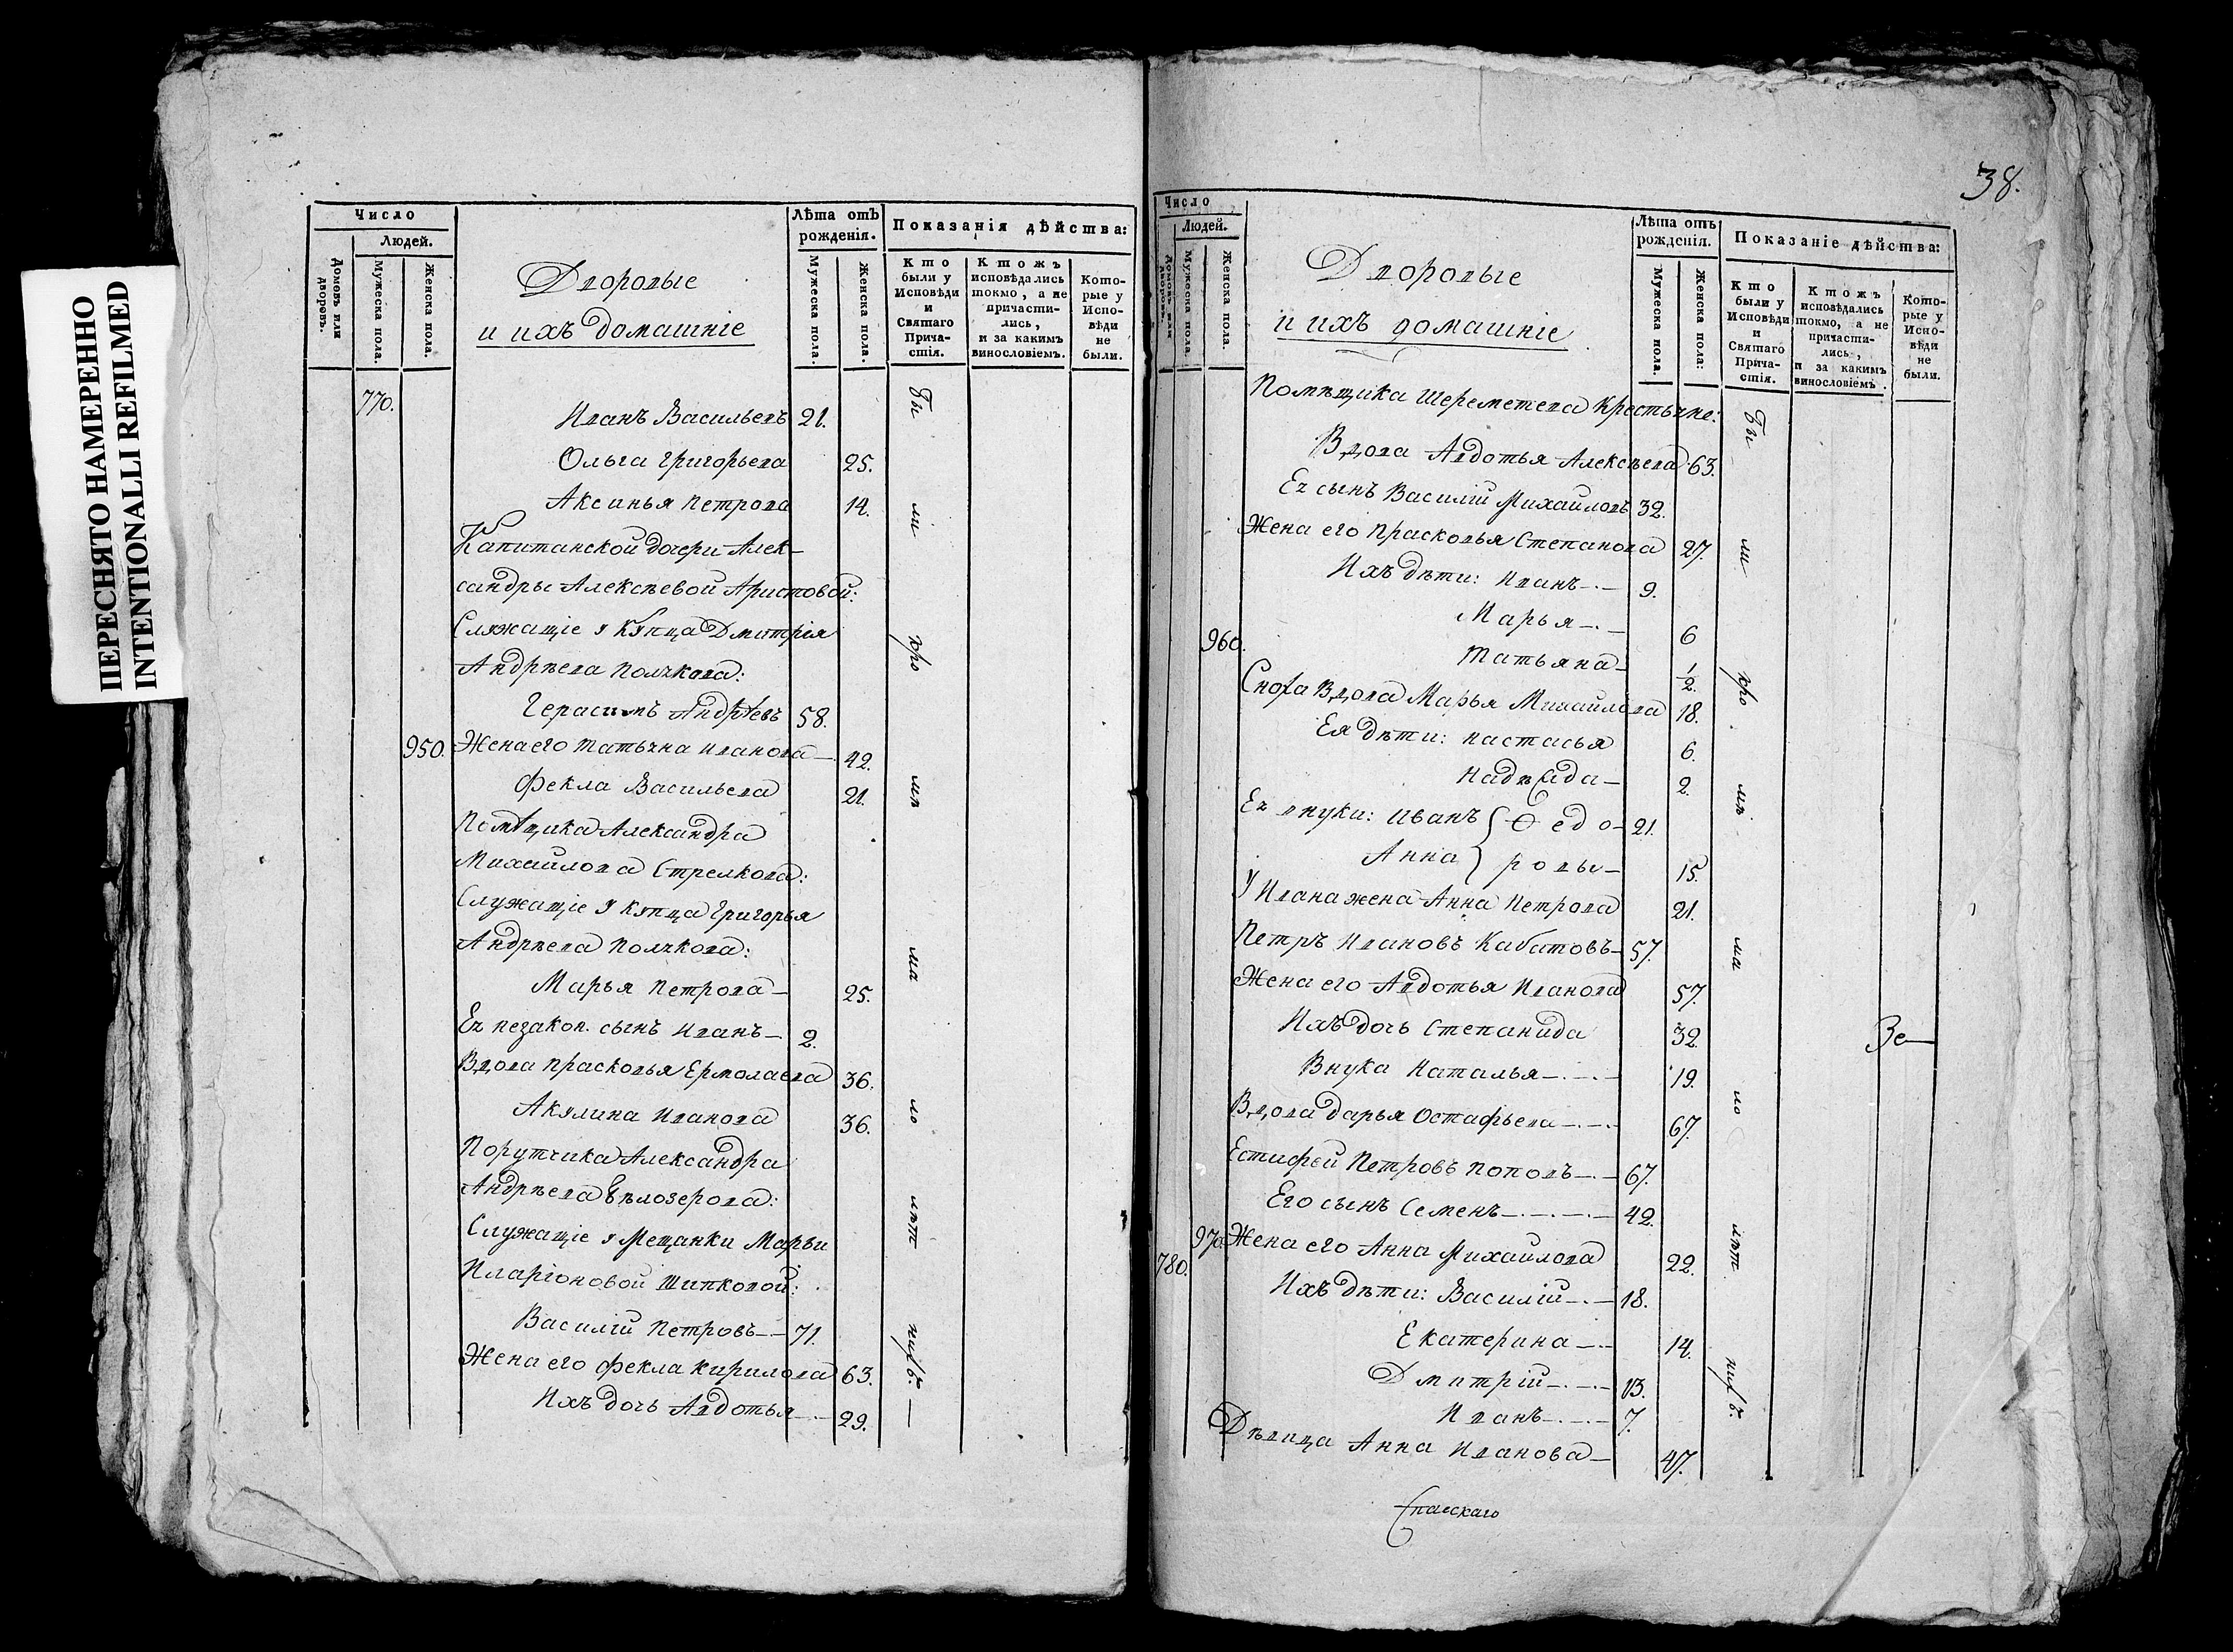 ПЕРЕСНЯТО НАМЕРЕННО
INTENTIONALLI REFILMED
Число
Людей.
Домовъ или дворовъ.
Мужеска пола.
Женска пола.
Дворовые
и ихъ домашніе
Лѣта отъ рожденія.
Мужеска пола.
Женска пола.
Показанія дѣйства:
Кто были у Исповѣди и Святаго Причастія.
Ктожъ исповѣдались токмо, а не причастились, и за какимъ винословіемъ.
Которые у Исповѣди не были.
770. Иванъ Васильевъ 21.
Ольга Григорьева 25.
Аксинья Петрова 14.
Капитанской дочери Алек-
сандры Алексѣевой Аристовой:
Служащіе у Купца Дмитрія
Андрѣева Полякова:
Герасимъ Андрѣевъ 58.
950. Жена его Татьяна Иванова 42.
Фекла Васильева 21.
Помѣщика Александра
Михайлова Стрелкова:
Служащіе у купца Григорья
Андрѣева Полякова:
Марья Петрова 25.
Ея незакон. сынъ Иванъ 2.
Вдова Прасковья Ермолаева 36.
Акулина Иванова 36.
Порутчика Александра
Андрѣева Бѣлозерова:
Служащіе у Мещанки Марьи
Иларіоновой Шипковой:
Василій Петровъ 71.
Жена его Фекла Кирилова 63.
Ихъ дочь Авдотья 29.
Бы
ли
мѣ
ма
ло
лѣт
38.
Число
Людей.
Домовъ или дворовъ.
Мужеска пола.
Женска пола.
Дворовые
и ихъ домашніе
Лѣта отъ рожденія.
Мужеска пола.
Женска пола:
Показаніе дѣйства:
Кто были у Исповѣди и Святаго Причастія.
Ктожъ исповѣдались токмо, а не причастились, и за какимъ винословіемъ.
Которые у Исповѣди не были.
Помѣщика Шереметева Крестьяне:
Вдова Авдотья Алексѣева 63.
Ея сынъ Василій Михайловъ 32.
Жена его Прасковья Степанова 27.
Ихъ дѣти: Иванъ 9.
Марья 6
960. Татьяна 1/2.
Сноха вдова Марья Михайлова 18.
Ея дѣти: Настасья 6.
Надѣжда 2.
Ея внуки: Иванъ { Ѳедо- 21.
Анна } ровы 15.
У Ивана жена Анна Петрова 21.
Петръ Ивановъ Кабатовъ 57.
Жена его Авдотья Иванова 57.
Ихъ дочь Степанида 32.
Внука Наталья 19.
Вдова Дарья Остафьева 67.
Естифей Петровъ Поповъ 67.
Его сынъ Семенъ 42.
970. Жена его Анна Михайлова 22.
780. Ихъ дѣти: Василій 18.
Екатерина 14.
Дмитрій 13.
Иванъ 7.
Дѣвица Анна Иванова 47.
Бы
ли
мѣ
ма
ло
лѣт
Спасскаго